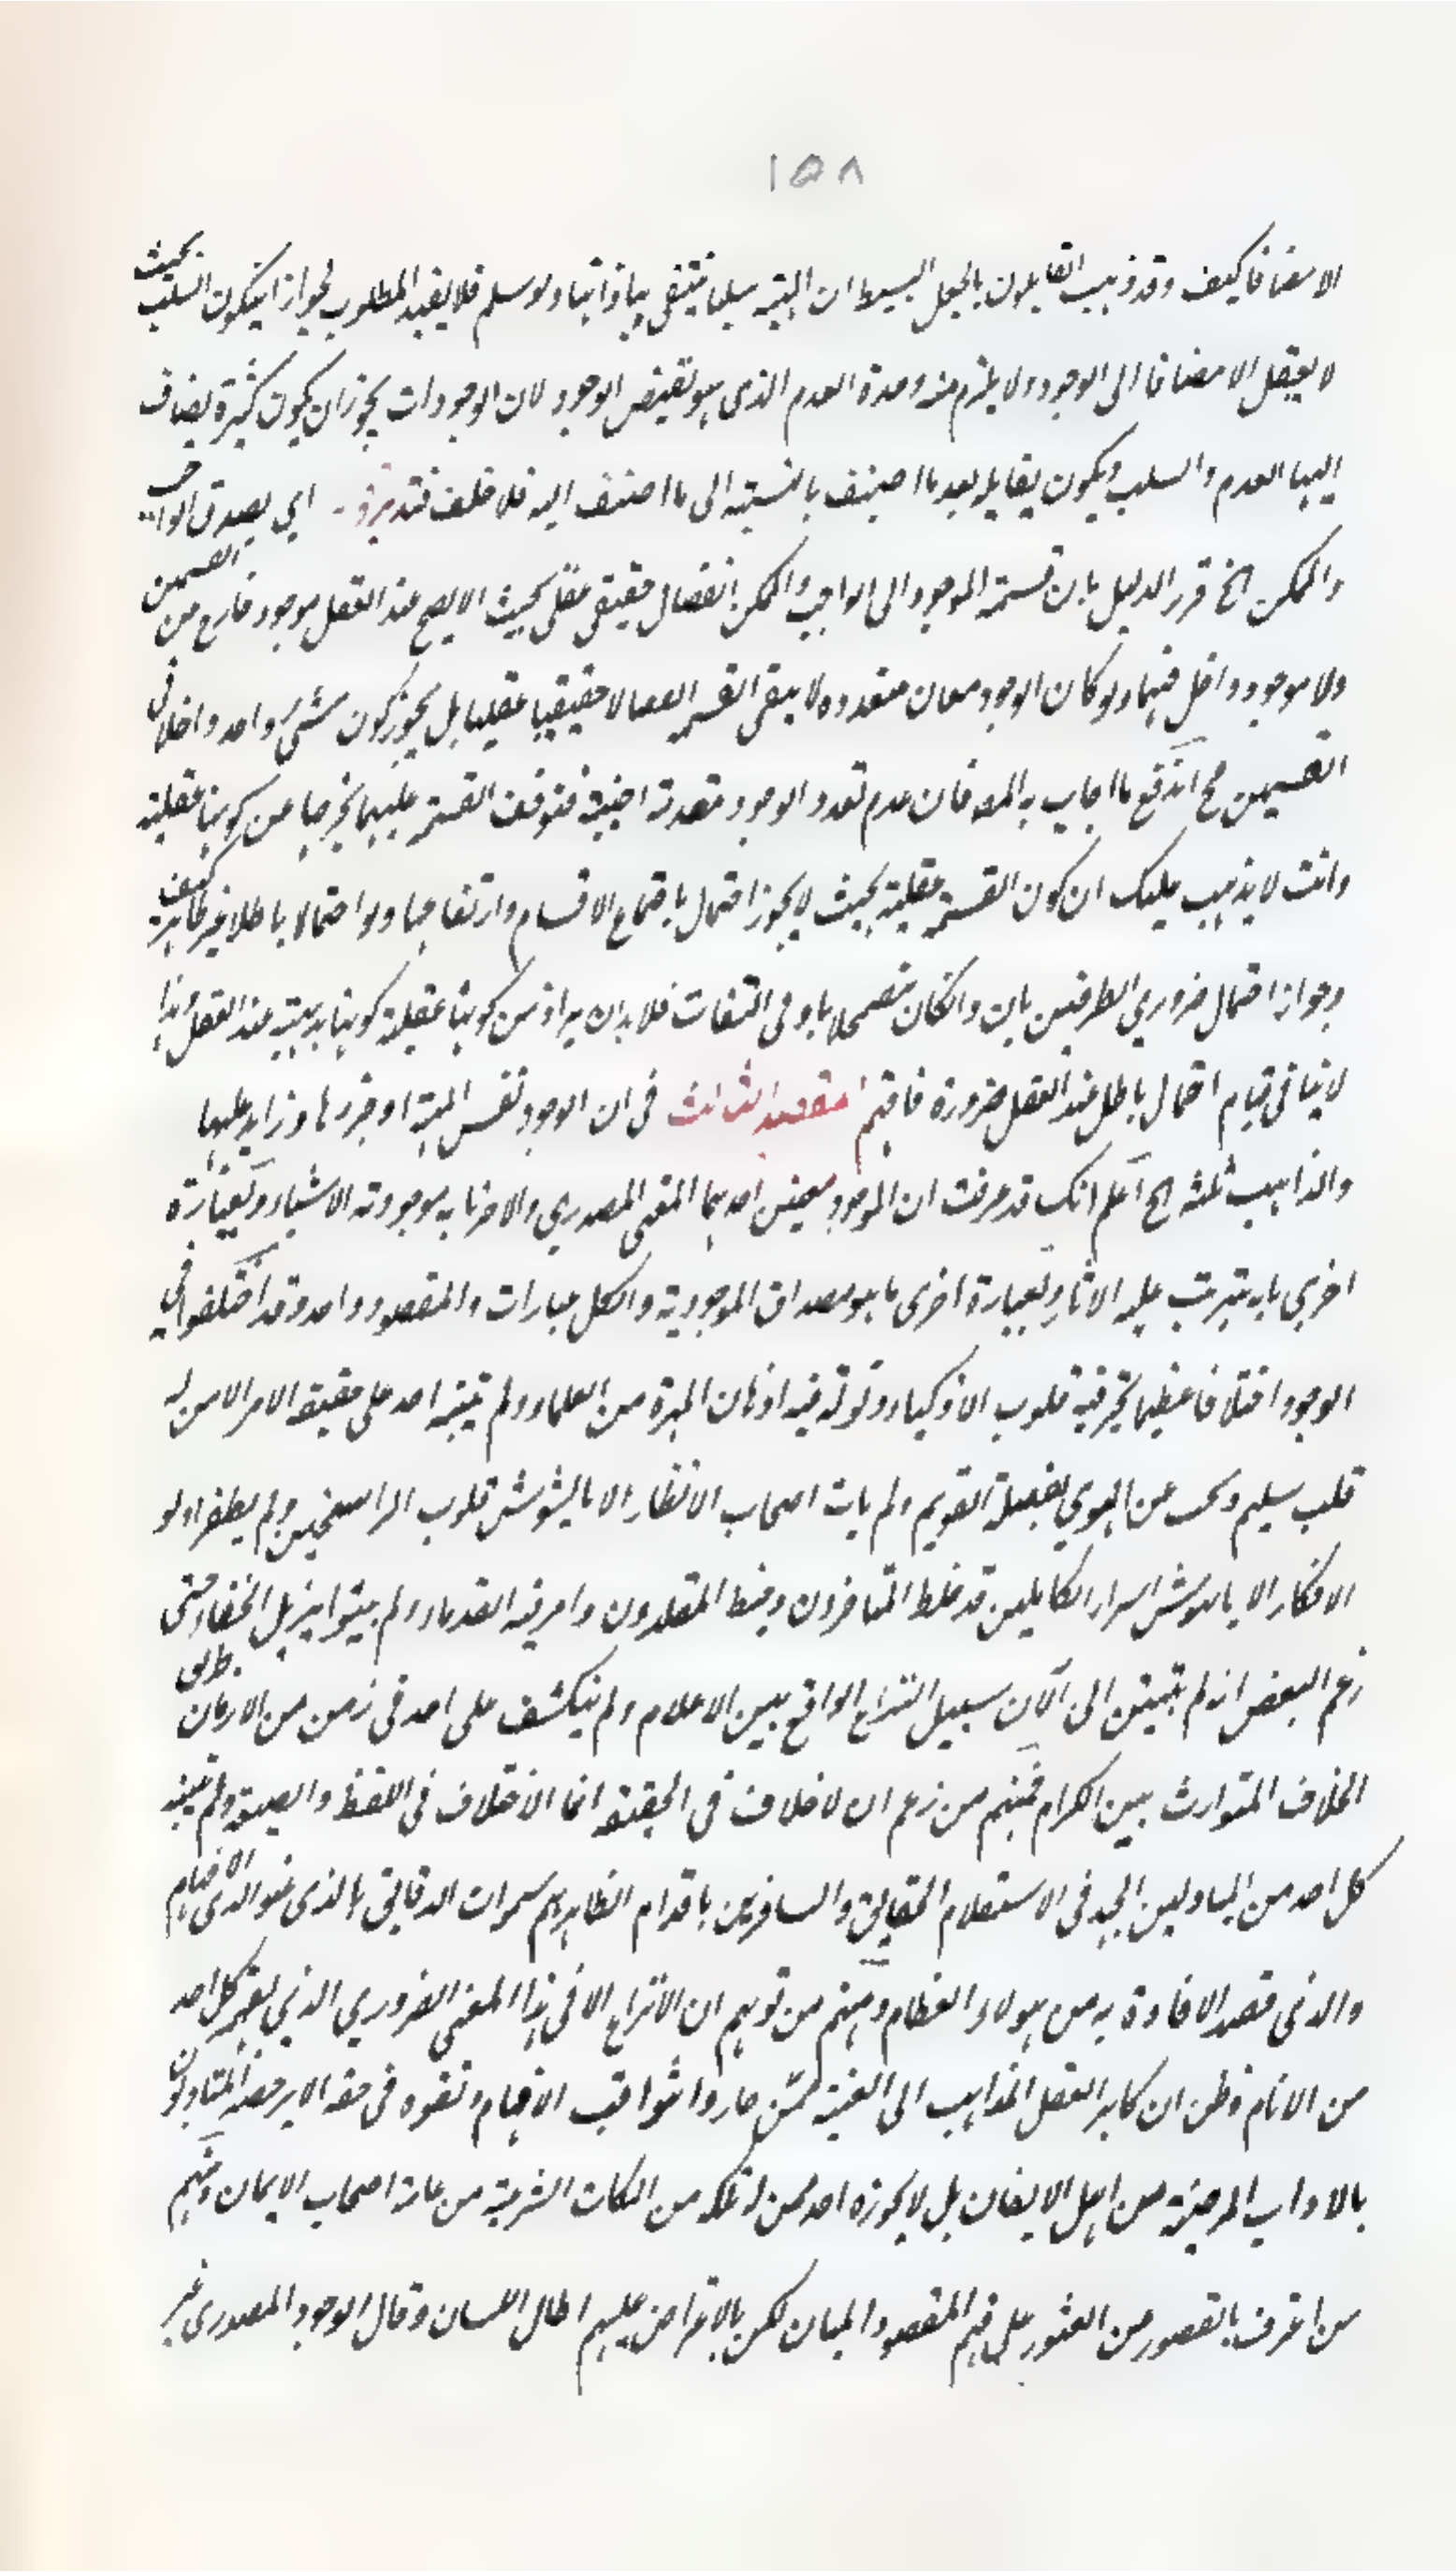 ١٥٨
الا مضافا كيف وقد ذهب القايلون بالجعل البسيط ان الهية سلبها ينتفى بها ذاتها ولو سلم فلا يفيد المطلوب لجواز ان يكون السلب بحيث
لا يعقل الا مضافا الى الوجود ولا يلزم منه وحدة العدم الذى هو نقيض الوجود لان الوجودات يجوز ان يكون كثيرة يضاف
اليها العدم والسلب ويكون يقابله بعد ما اضيف بالنسبة الى ما اضيف اليه فلا خلف فتدبر قوله اي يصدق الواجب
والممكن الخ قرر الدليل بان قسمة الموجود الى الواجب والممكن انفصال حقيقى عقلى بحيث لا يصح عند العقل موجود خارج من القسمين
ولا موجود داخل فيهما ولو كان الوجود معان متعددة لا يبقى القسمة انفصالا حقيقيا عقليا بل يجوز كون شئ واحد داخلا في
القسمين مح اندفع ما اجاب به المص فان عدم تعدد الوجود مقدمة اجنبية فتوقف القسمة عليهما يخرجها عن كونها عقلية
وانت لا يذهب عليك ان كون القسمة عقلية بحيث لا يجوز احتمال باجتماع الاقسام وارتفاعها ولو احتمالا باطلا غير ظاهر كيف
وجواز احتمال ضروري الطرفين باين وان كان مضمحلا بادنى التفات فلا بد ان يراد من كونها عقلية كونها بديهية عند العقل وهذا
لا ينافى قيام احتمال باطل عند العقل ضرورة فافهم المقصد الثالث فى ان الوجود نفس الهية او جزءها وزايد عليها
والمذاهب ثلثة الخ اعلم انك قد عرفت ان للوجود معنيين احدهما المعنى المصدري والاخر ما به موجودية الاشياء وبعبارة
اخرى ما به يترتب عليه الاثار وبعبارة اخرى ما هو مصداق الموجودية والكل عبارات والمقصود واحد وقد اختلفوا في
الوجود اختلافا عظيما تحير فيه قلوب الاذكياء وتوله فيه اذهان المهرة من العلماء ولم يتنبه احد على حقيقة الامر الا من له
قلب سليم وكف عن الهوي بفضيلة القويم ولم يات اصحاب الانظار الا ما يشوش قلوب الراسخين ولم يظفر اولو
الافكار الا بما يوش اسرار الكاملين قد خلط المتاخرون وخبط المقلدون وامر فيه القدماء ولم يبينوا يزيل الخفاء حتى
زعم البعض انه لم يتبين الى الآن سبيل النزاع الواقع بين الاعلام ولم ينكشف على احد فى زمن من الازمان طريق
الخلاف المتوارث بين الكرام فمنهم من زعم ان لا خلاف فى الحقيقة انما الاختلاف فى اللفظ والصيغة ولم يتبينه
كل احد من الباذلين الجهد فى الاستعلام الحقايق والمسافرين باقدام انظارهم سموات الدقايق ما الذى عنوا الذى الاخر
والذى قصد الافادة به من هولاء العظام ومنهم من توهم ان لا نزاع الا فى هذا المعنى الضروري الذي يفهم كل احد
من الانام وظن ان كابر العقل المذاهب الى الغيبة ممن جاروا ثواقب الافهام وتفوه فى حقه الا يرخصه المتادبون
بالاداب المرضية من اهل الايقان بل لا يجوزه احد ممن له تمكن من النكات الشرعية من عامة اصحاب الايمان ومنهم
من اعترف بالقصور من العثور على فهم المقصود المبان لكن بالاعتراض عليهم اطال اللسان وقال الوجود المصدرى غير